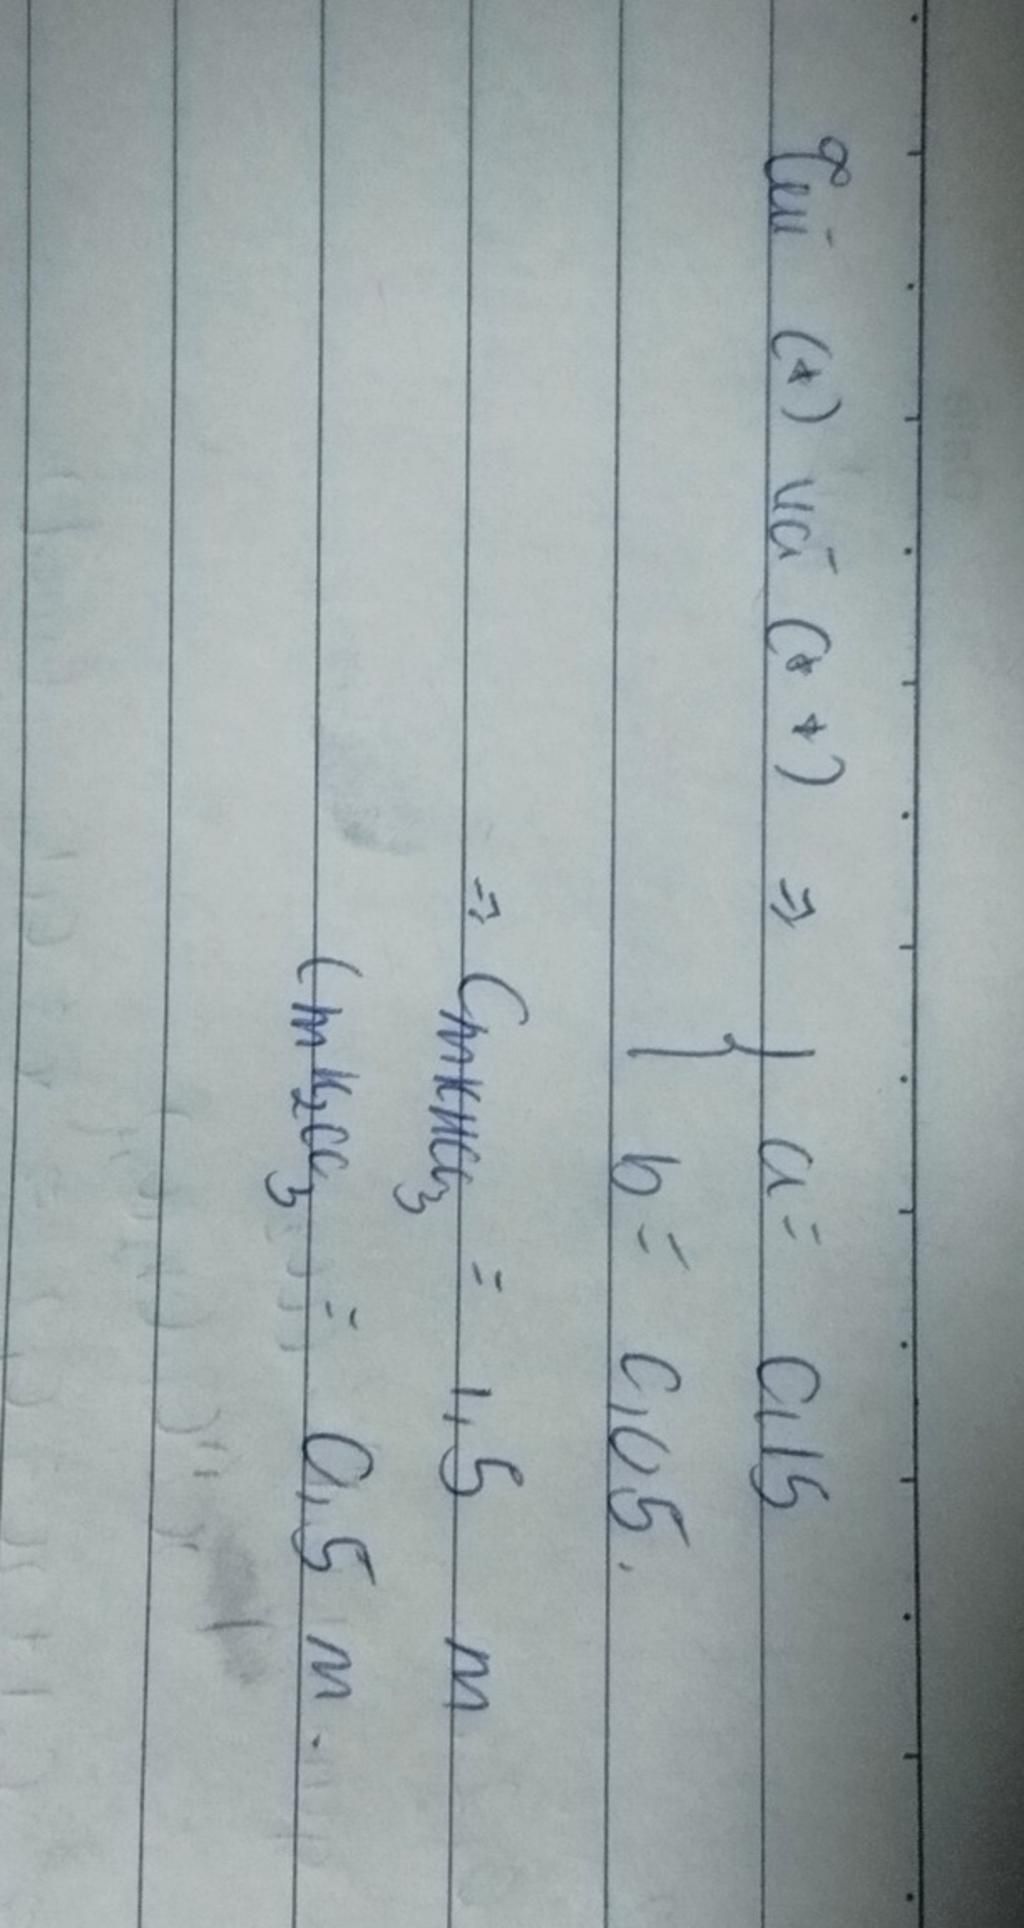 Từ (*) và (**) => { a = 0,15
b = 0,05.
=> CmKHCO3 = 1,5 m
CmK2CO3 = 0,5 m.